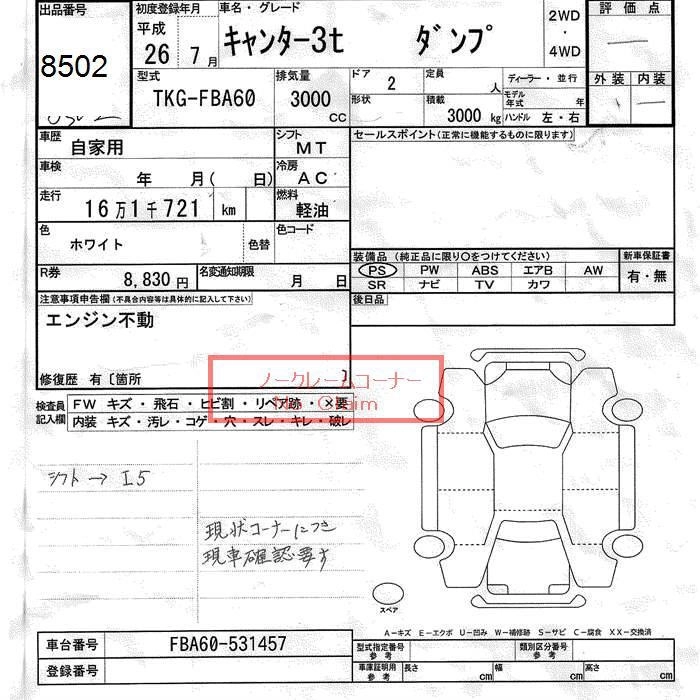 出品番号 初度登録年月 車名・グレード 2WD ・ 4WD 評価点
8502 平成 26年 7月 キャンター3t ダンプ
型式 TKG-FBA60 排気量 3000 cc ドア 2 定員 人 ディーラー・並行 外装 内装
形状 積載 3000 kg モデル年式 年 ハンドル 左・右
車歴 自家用 シフト MT セールスポイント(正常に機能するものに限ります)
車検 年 月( 日) 冷房 AC
走行 16万1千721 km 燃料 軽油
色 ホワイト 色替 色コード
装備品 (純正品に限り○をつけてください) 新車保証書
R券 8,830円 名変通知期限 月 日 PS PW ABS エアB AW 有・無
SR ナビ TV カワ
注意事項申告欄(不具合内容等は具体的に記入して下さい) 後日品
エンジン不動
修復歴 有〔箇所 〕
ノークレームコーナー
No Claim
検査員記入欄 FW キズ・飛石・ヒビ割・リペア跡・×要
内装 キズ・汚レ・コゲ・穴・スレ・キレ・破レ
シフト→I5
現状コーナーにつき
現車確認要す
スペア
A-キズ E-エクボ U-凹み W-補修跡 S-サビ C-腐食 XX-交換済
車台番号 FBA60-531457 型式指定番号 参考 類別区分番号 参考
登録番号 車庫証明用 参考 長さ cm 幅 cm 高さ cm